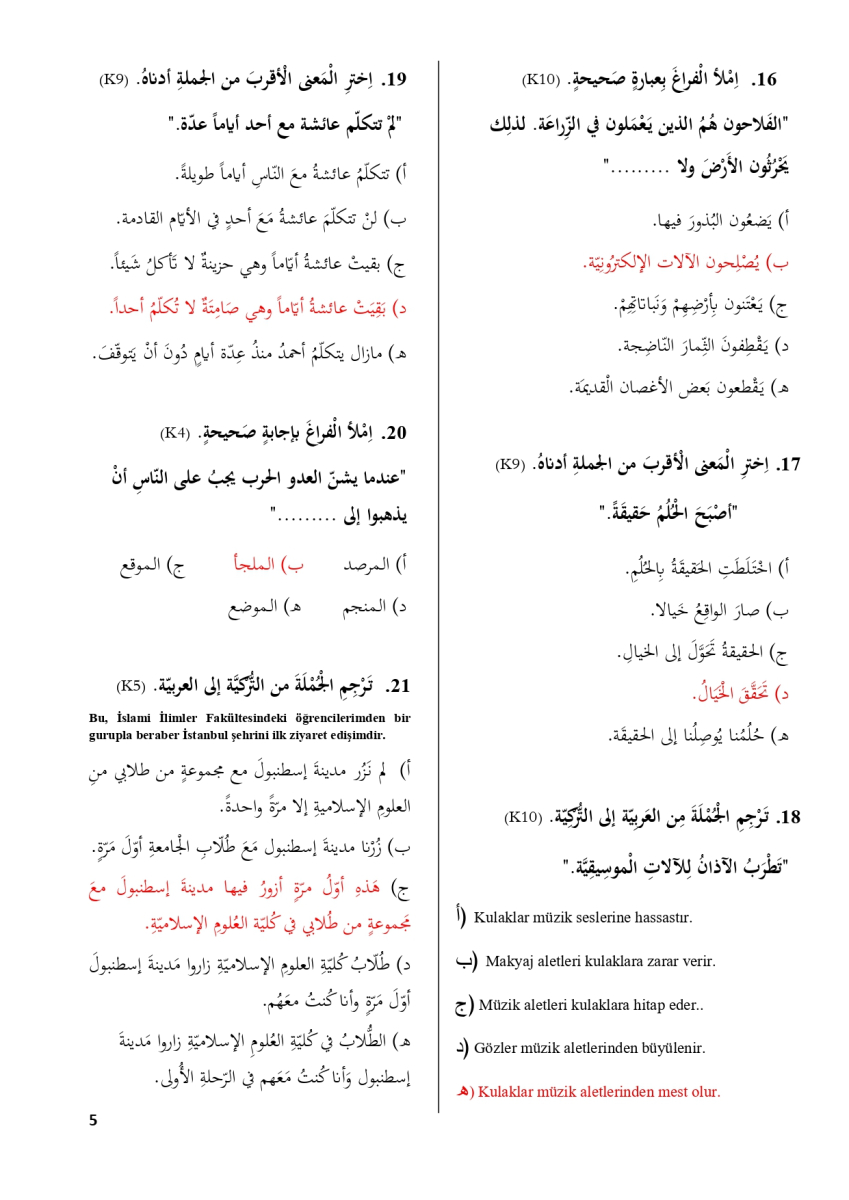 16. اِمْلأ الْفراغَ بِعبارةٍ صَحيحةٍ. (K10)
"الفَلاحون هُمُ الذين يَعْمَلون في الزِّراعَة. لذلِك
يَحْرُثُون الأَرْضَ ولا ........."
أ) يَضعُون البُذورَ فيها.
ب) يُصْلِحون الآلات الإلكترُونِيّة.
ج) يَعْتَنون بِأرْضِهِمْ وَنَباتاتِهِمْ.
د) يَقْطِفونَ الثِّمارَ النّاضِجة.
هـ) يَقْطعون بَعض الأغصان الْقديمَة.
17. اِخترِ الْمَعنى الْأقربَ من الجملةِ أدناهُ. (K9)
"أصْبَحَ الْحُلُمُ حَقيقَةً."
أ) اخْتَلَطَتِ الحَقيقَةُ بِالحُلُمِ.
ب) صارَ الواقِعُ خَيالا.
ج) الحقيقةُ تَحَوَّلَ إلى الخيالِ.
د) تَحَقَّقَ الْخَيَالُ.
هـ) حُلُمُنا يُوصِلُنا إلى الحقيقَة.
18. تَرْجِمِ الْجُمْلَةَ مِن العَرَبِيّة إلى التُّرْكِيّة. (K10)
"تَطْرَبُ الآذانُ لِلآلاتِ الْموسِيقِيَّة."
أ) Kulaklar müzik seslerine hassastır.
ب) Makyaj aletleri kulaklara zarar verir.
ج) Müzik aletleri kulaklara hitap eder..
د) Gözler müzik aletlerinden büyülenir.
هـ) Kulaklar müzik aletlerinden mest olur.
19. اِخترِ الْمَعنى الْأقربَ من الجملةِ أدناهُ. (K9)
"لمْ تتكلّم عائشة مع أحد أياماً عدّة."
أ) تتكلّمُ عائشةُ معَ النّاسِ أياماً طويلةً.
ب) لنْ تتكلّمَ عائشةُ مَعَ أحدٍ في الأيّام القادمة.
ج) بقيتْ عائشةُ أيّاماً وهي حزينةٌ لا تَأكلُ شَيئاً.
د) بَقِيَتْ عائشةُ أيّاماً وهي صَامِتَةٌ لا تُكلّمُ أحداً.
هـ) مازال يتكلّمُ أحمدُ منذُ عِدّة أيامٍ دُونَ أنْ يَتوقّفَ.
20. اِمْلأ الْفراغَ بإجابةٍ صَحيحةٍ. (K4)
"عندما يشنّ العدو الحرب يجبُ على النّاسِ أنْ
يذهبوا إلى ........."
أ) المرصد ب) الملجأ ج) الموقع
د) المنجم هـ) الموضع
21. تَرْجِمِ الْجُمْلَةَ من التُّرْكيَّة إلى العربيّة. (K5)
Bu, İslami İlimler Fakültesindeki öğrencilerimden bir
gurupla beraber İstanbul şehrini ilk ziyaret edişimdir.
أ) لم نَزُر مدينةَ إسطنبولَ مع مجموعةٍ من طلابي منِ
العلومِ الإسلاميةِ إلا مرّةً واحدةً.
ب) زُرْنا مدينةَ إسطنبول مَعَ طُلّابِ الْجامعةِ أوّلَ مَرّةٍ.
ج) هَذهِ أوّلُ مرّةٍ أزورُ فيها مدينةَ إسطنبولَ معَ
مَجموعةٍ من طُلابي في كُليّة العُلومِ الإسلاميّةِ.
د) طُلّابُ كُليّةِ العلومِ الإسلاميّةِ زاروا مَدينةَ إسطنبولَ
أوّلَ مَرّةٍ وأنا كُنتُ معَهُم.
هـ) الطُّلابُ في كُليّةِ العُلومِ الإسلاميّةِ زاروا مَدينةَ
إسطنبول وَأنا كُنتُ مَعَهم في الرّحلةِ الأُولى.
5